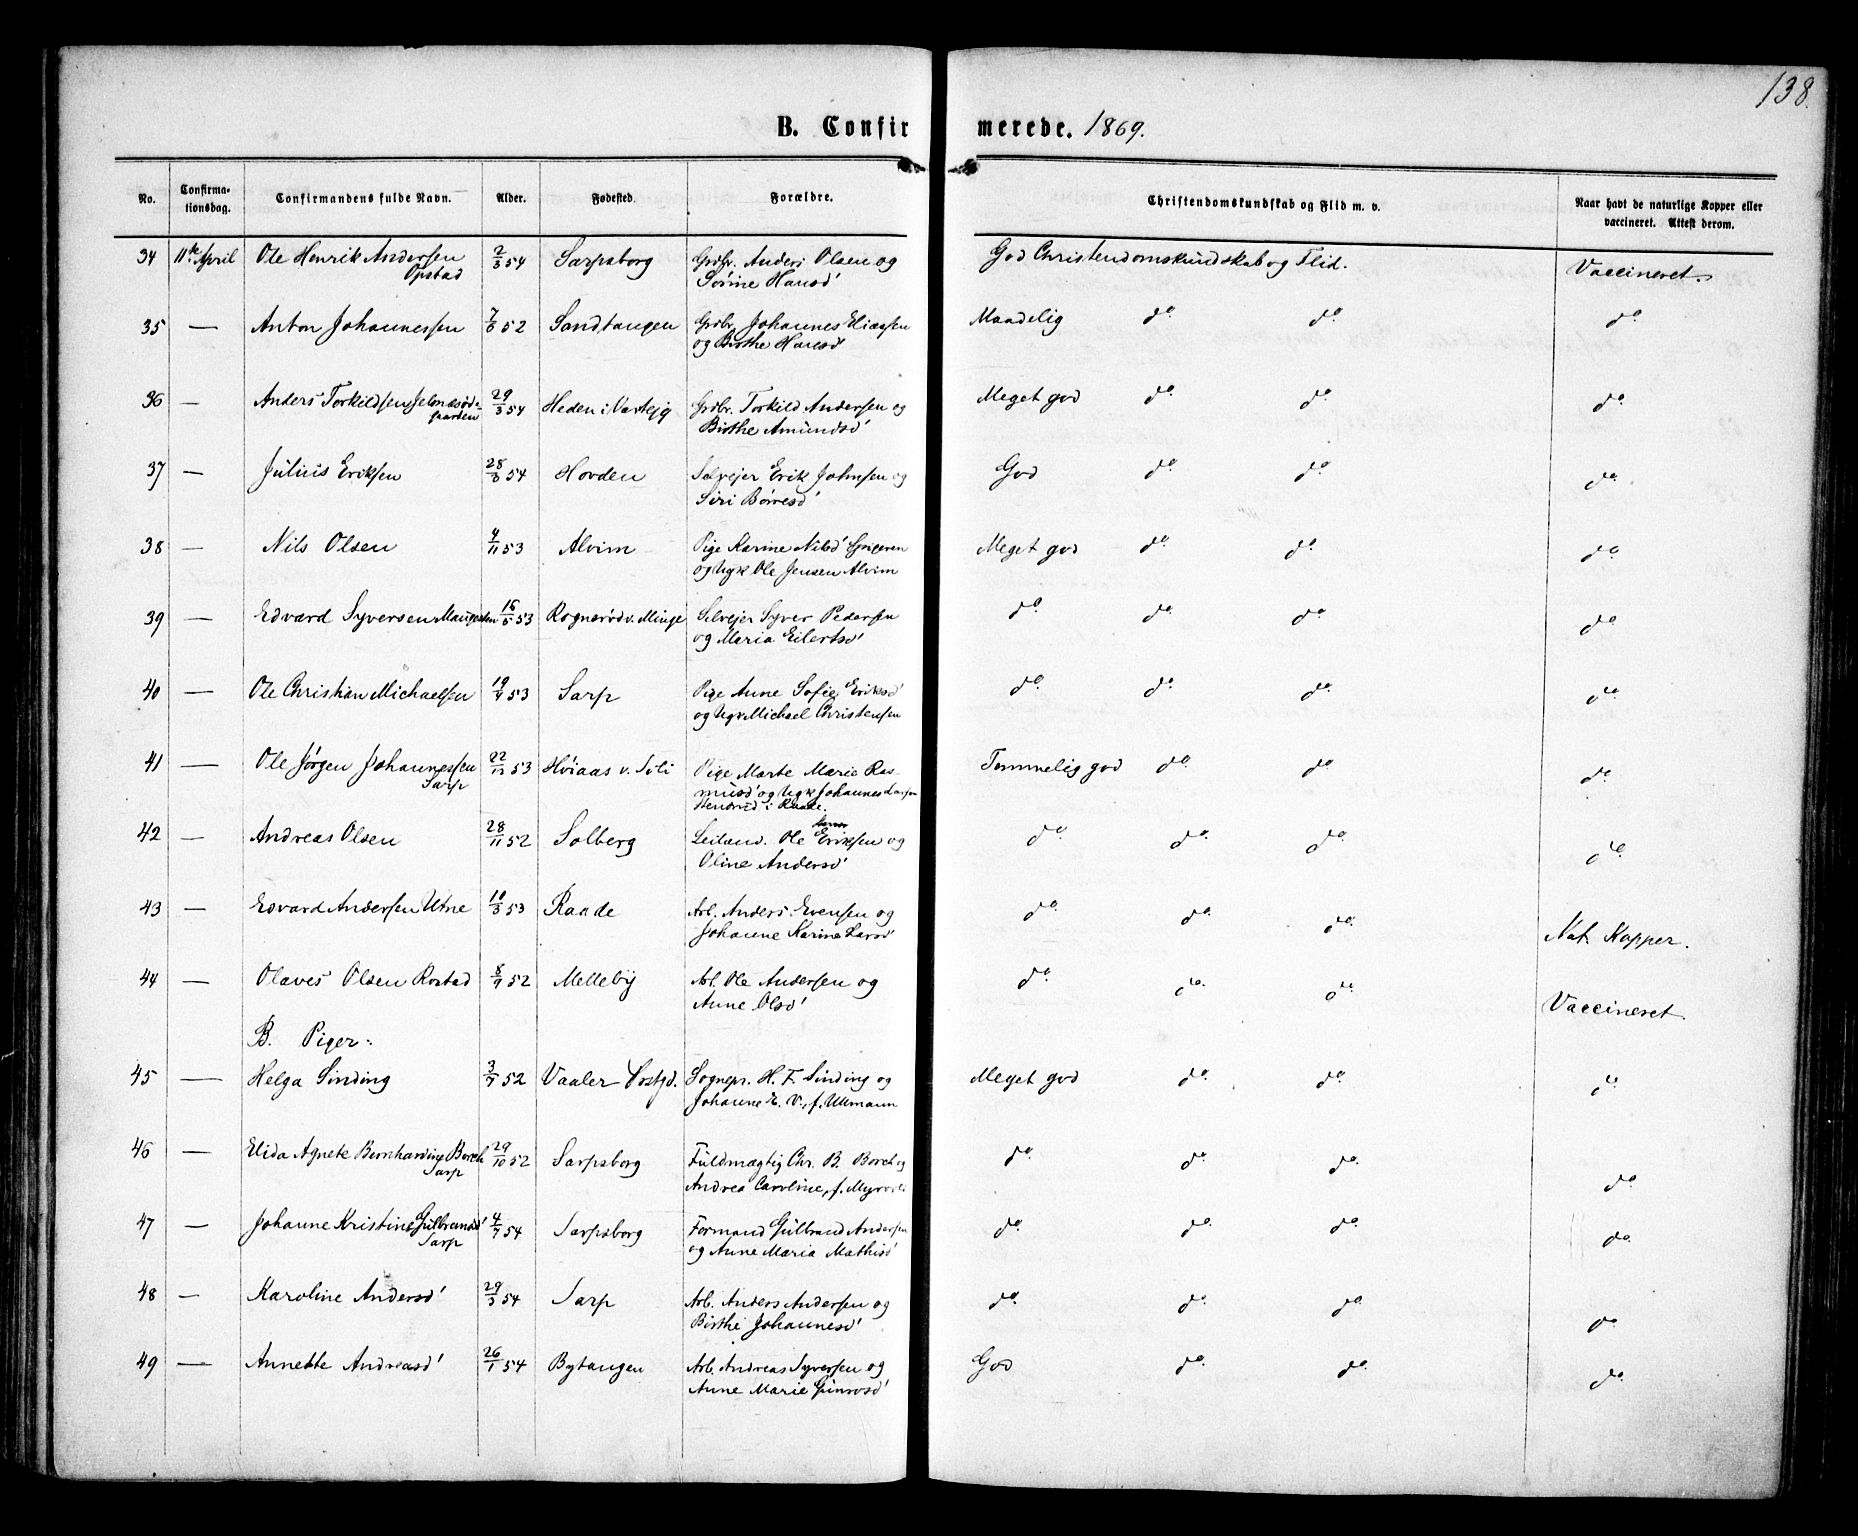 138.
B. Confirmerede. 1869.
No. Confirmationsdag. Confirmandens fulde Navn. Alder. Fødested. Forældre. Christendomskundskab og Flid m. v. Naar havt de naturlige Kopper eller vaccineret. Attest derom.
34 11te April Ole Henrik Andersen 2/3 54 Sarpsborg Grdbr. Anders Olsen og God Christendomskundskab og Flid. Vaccineret.
Opstad Sörine Hansd'
35 — Anton Johannessen 52 Sandtangen Grdbr. Johannes Eliassen Maadelig do do do
og Birthe Hansd'
36 — Anders Torkildsen 29/3 54 Heden i Varteig Grdbr. Torkild Andersen og Meget god do do do
Birthe Amundsd'
37 — Julius Eriksen 54 Hovden Selvejer Erik Johnsen og God do do do
Siri Börresd'
38 — Nils Olsen 4/11 53 Alvim Pige Karine Nilsd' Meget god do do do
og Ugk Ole Jensen Alvim
39 — Edvard Syversen 16/5 53 Rognerød v. Minge Selvejer Syver Pedersen do do do do
og Maria Eilertsd'
40 — Ole Christian Michaelsen 53 Sarp Pige Anne Sofie Eriksd' do do do do
og Michael Christensen
41 — Ole Jørgen Johannessen 22/12 53 v. Soli Pige Marte Marie Ras- Temmelig god do do do
Sarp musd' og Ugk Johannes Larsen
i Raade.
42 — Andreas Olsen 28/11 52 Solberg Leiland. Ole Eriksen og do do do do
Oline Andersd'
43 — Edvard Andersen Utne 10/3 53 Raade Arb. Anders Evensen og do do do Nat. Kopper.
Johanne Karine Larsd'
44 — Olaves Olsen Rostad 52 Melleby Arb. Ole Andersen og do do do Vaccineret.
Anne Olsd'
B. Piger:
45 — Helga Sinding 52 Vaaler Sognepr. H. F. Sinding og Meget god do do do
Johanne E. V., f. Ullmann
46 — Elida Agnete Bernhardine Borch 29/10 52 Sarpsborg Fuldmægtig Chr. B. Borch og do do do do
Sarp Andrea Caroline, f.
47 — Johanne Kristine Gulbrandsd' 4/7 54 Sarpsborg Formand Gulbrand Andersen do do do do
Sarp og Anne Maria Mathisd'
48 — Karoline Andersd' 29/3 54 Sarp Arb. Anders Andersen og do do do do
Birthe Johannesd'
49 — Annette Andreasd' 26/1 54 Bytangen Arb. Andreas Syversen og God do do do
Anne Marie